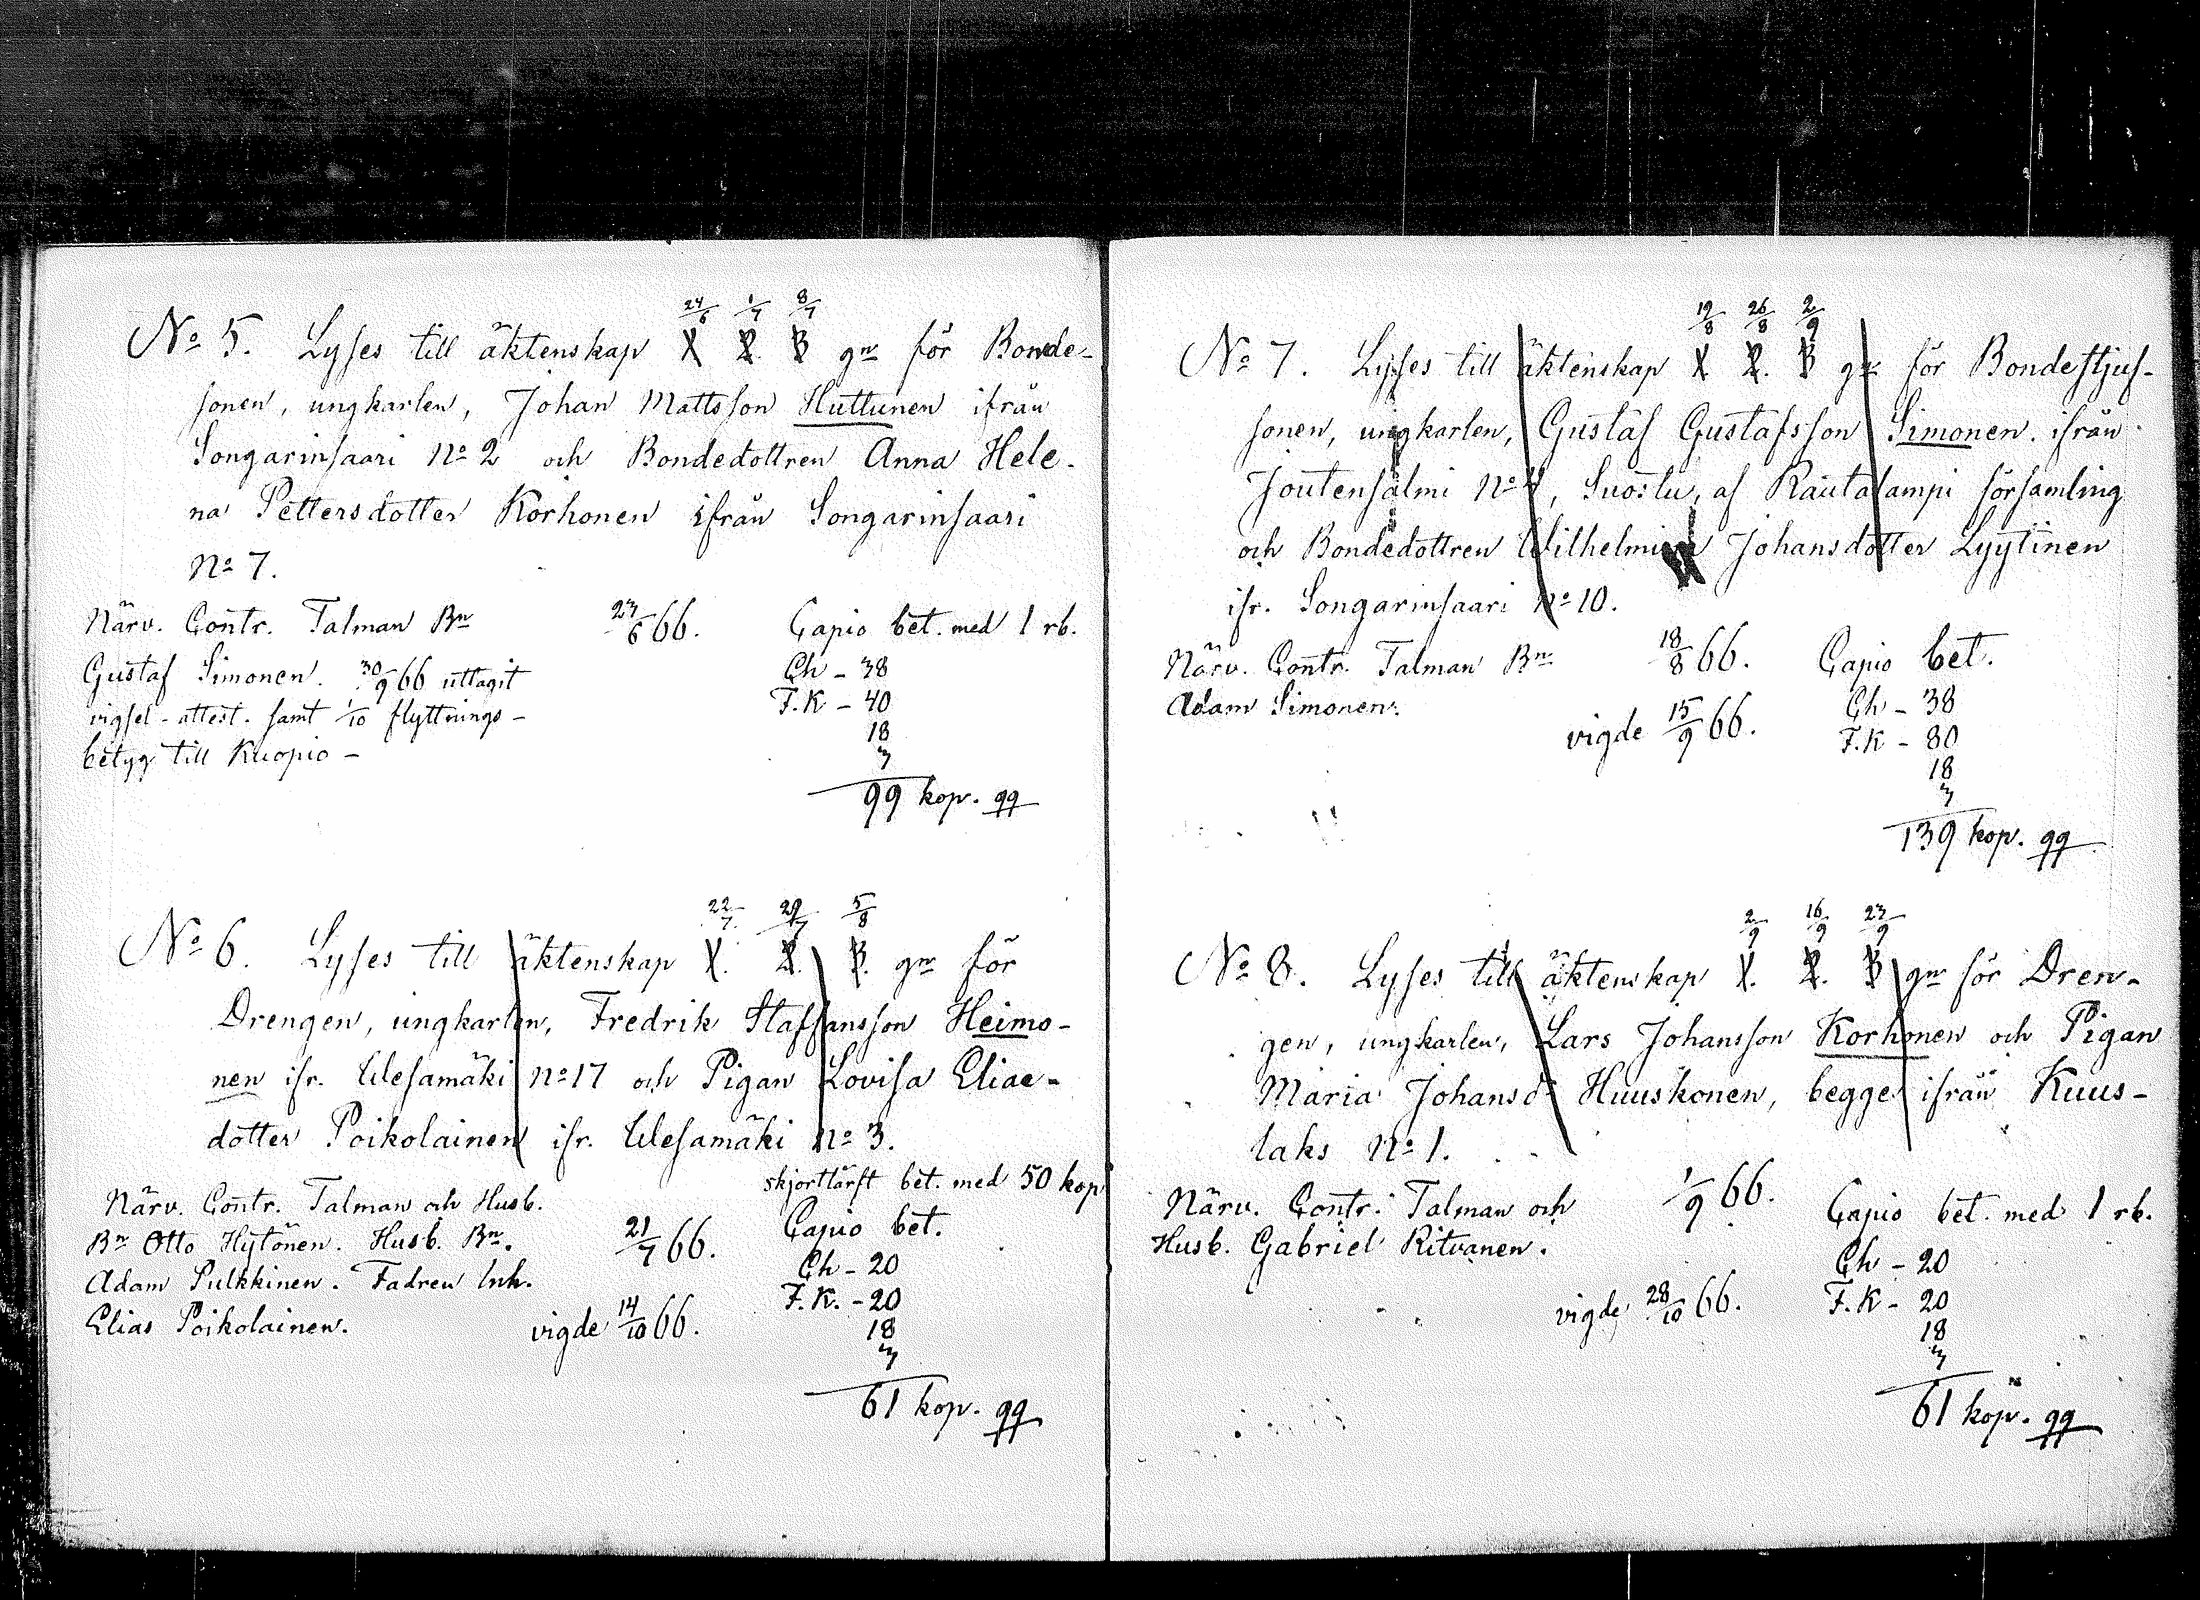 24/6 1/7 8/7
No 5. Lyses till äktenskap 1 2. 3 gr för Bonde-
sonen, ungkarlen, Johan Mattsson Huttunen ifrån
Songarinsaari No 2 och Bondedottren Anna Hele-
na Pettersdotter Korhonen ifrån Songarinsaari
No 7.
Närv. Contr. Talman Bn 23/6 66. Capio bet. med 1 rb.
Gustaf Simonen. 30/9 66 uttagit Ch - 38
vigsel-attest. samt 1/10 flyttnings- F.K - 40
betyg till Kuopio - 18
3
99 kop. qq
22/7 29/7 5/8
No 6. Lyses till äktenskap 1. 2. 3. gr för
Drengen, ungkarlen, Fredrik Staffansson Heimo-
nen ifr. Wesamäki No 17 och Pigan Lovisa Elias-
dotter Poikolainen ifr. Wesamäki No 3.
skjortlärft bet. med 50 kop
Närv. Contr. Talman och Husb. Capio bet.
Bn Otto Hytönen. Husb. Bn. 21/7 66. Ch - 20
Adam Pulkkinen. Fadren Inh. F.K. - 20
Elias Poikolainen. vigde 14/10 66. 18
3
61 kop. qq
19/8 26/8 2/9
No 7. Lyses till äktenskap 1 2. 3 gr för Bondestjuf-
sonen, ungkarlen, Gustaf Gustafsson Simonen. ifrån
Joutensalmi No 4, Suostu, af Rautalampi församling
och Bondedottren Wilhelmina Johansdotter Lyytinen
ifr. Songarinsaari No 10.
Närv. Contr. Talman Bn 18/8 66. Capio bet.
Adam Simonen. Ch - 38
vigde 15/9 66. F.K - 80
18
3
139 kop. qq
2/9 16/9 23/9
No 8. Lyses till äktenskap 1. 2. 3 gr för Dren-
gen, ungkarlen, Lars Johansson Korhonen och Pigan
Maria Johansdr Huuskonen, begge ifrån Kuus-
laks No 1.
Närv. Contr. Talman och 1/9 66. Capio bet. med 1 rb.
Husb. Gabriel Ritvanen. Ch - 20
vigde 28/10 66. F.K - 20
18
3
61 kop. qq